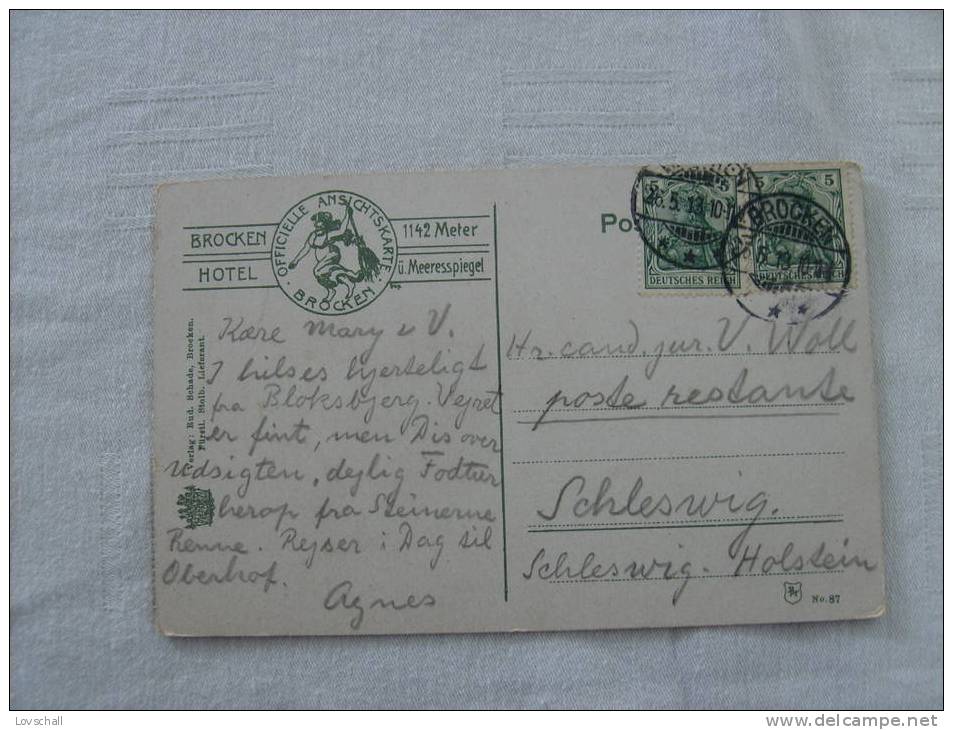 BROCKEN HOTEL
OFFICIELLE ANSICHTSKARTE
BROCKEN
1142 Meter
ü. Meeresspiegel
Verlag: Rud. Schade, Brocken.
Fürstl. Stolb. Lieferant.
Kære Mary & V.
I hilses hjerteligt
fra Bloksbjerg. Vejret
er fint, men Dis over
Udsigten, dejlig Fodtur
herop fra Steinerne
Renne. Rejser i Dag til
Oberhof.
Agnes
Pos
5
5
DEUTSCHES REICH
5
DEUTSCHES REICH
26.5.13.10-1
BROCKEN
Hr. cand. jur. V. Woll
poste restante
Schleswig.
Schleswig-Holstein
No. 87
Lovschall
www.delcampe.net